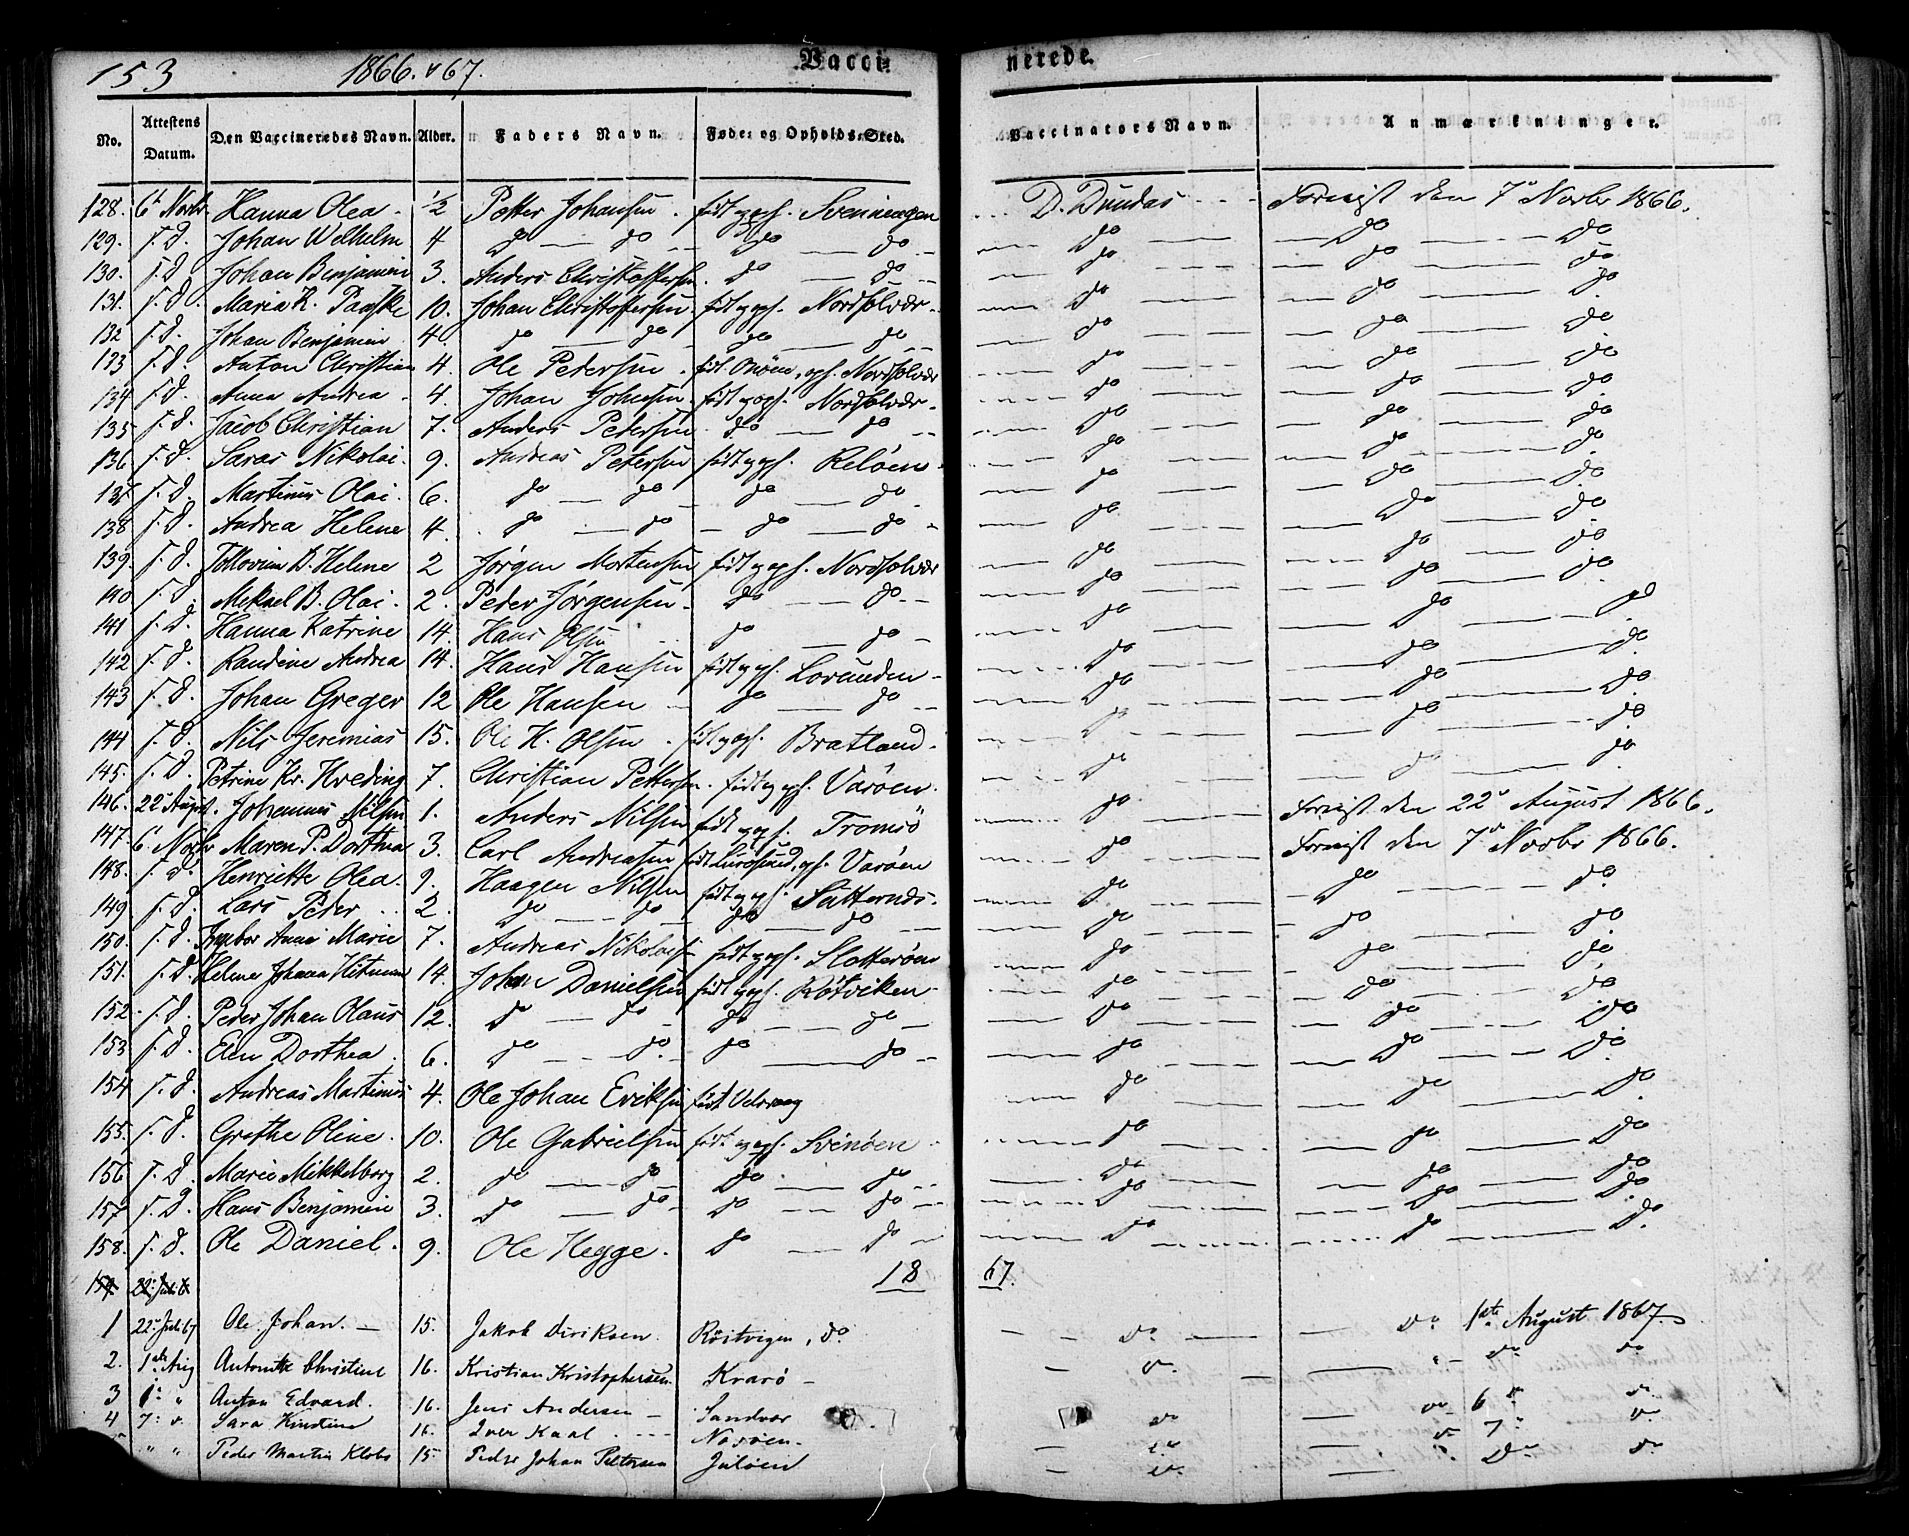 153 1866. & 67. Vacci- nerede.
No. Attestens Datum. Den Vaccineredes Navn. Alder. Faders Navn. Føde- og Opholds-Sted. Vaccinators Navn. Anmærkninger.
128. 6t Novbr Hanna Olea. ½ Petter Johansen. født og oph. Svenningen D. Dundas Forevist den 7de Novbr 1866.
129. s. d. Johan Welhelm 4 do do do do do do do
130. s. d. Johan Benjamin 3. Anders Christoffersen do do do do do
131. s. d. Maria K. Paaske 10. Johan Christoffersen født og oph. Nordsolvær do do do
132 s. d. Johan Benjamin 4 do do do do do do do
133 s. d. Anton Christian 4. Ole Pedersen født Onøen, oph. Nordsolvær do do do
134 s. d. Anna Andrea 4. Johan Johnsen født og oph. Nordsolvær do do do
135 s. d. Jacob Christian 7. Anders Petersen do do do do do
136 s. d. Saras Nikolai. 9. Andreas Petersen født og oph. Reløen do do do
137 s. d. Martinus Olai. 6. do do do do do do do
138 s. d. Andrea Helene 4. do do do do do do do
139. s. d. B. Helene 2 Jørgen Mortensen født og oph. Nordsolvær do do do
140 s. d. Mekael B. Olai. 2. Peder Jørgensen do do do do do
141 s. d. Hanna Katrine 14. Hans Olsen do do do do do
142 s. d. Randine Andrea 14. Hans Hansen født og oph. Lovunden do do do
143 s. d. Johan Greger 12 Ole Hansen do do do do do
144 s. d. Nils Jeremias 15. Ole H. Olsen født og oph. Bratland do do do
145. s. d. Petrine Kr. Hveding 7. Christian Pettersen født og oph. Varøen do do do
146. 22 August. Johannes Nilsen 1. Anders Nilsen født og oph. Tromsö do Forevist den 22de August 1866.
147. 6t Novbr Maren P. Dorthea 3. Carl Andreasen født Lurosund, oph. Varøen do Forevist den 7de Novbr 1866.
148. s. d. Henriette Olea. 9. Haagen Nilsen født og oph. do do do
149 s. d. Lars Peder 2. do do do do do do do
150. s. d. Ingebor Anne Marie 7. Andreas Nikolaisen født og oph. Slotterøen do do do
151. s. d. Helene Johana 14. Johan Danielsen født og oph. Røtviken do do do
152. s. d. Peder Johan Olaus 12. do do do do do do do
153 s. d. Elen Dorthea 6. do do do do do do do
154 s. d. Andreas Martinus 4. Ole Johan Eriksen født Velsvaag do do do
155. s. d. Grethe Oline. 10. Ole Gabrielsen født og oph. Svinøen do do do
156 s. d. Marie Mikkelborg 2. do do do do do do do
157 s. d. Hans Benjamin 3. do do do do do do do
158. s. d. Ole Daniel. 9. Ole Hegge. do do do do do
159 22. Juli 18 67.
1 22. Juli 67 Ole Johan. 15. Jakob Diriksen Röitvigen, do do do 1ste August 1867
2. 1ste Aug Antonette Christine 16. Kristian Kristophersen Kvarö do do do
3 1. " Anton Edvard. 16. Jens Andersen Sandvær do do 6 do do
4 7. " Sara Kirstine 16. Iver Kaal Nosöen do do 7. do
" " Peder Martin Klebo 15. Peder Johan Pettersen Julöen do do do